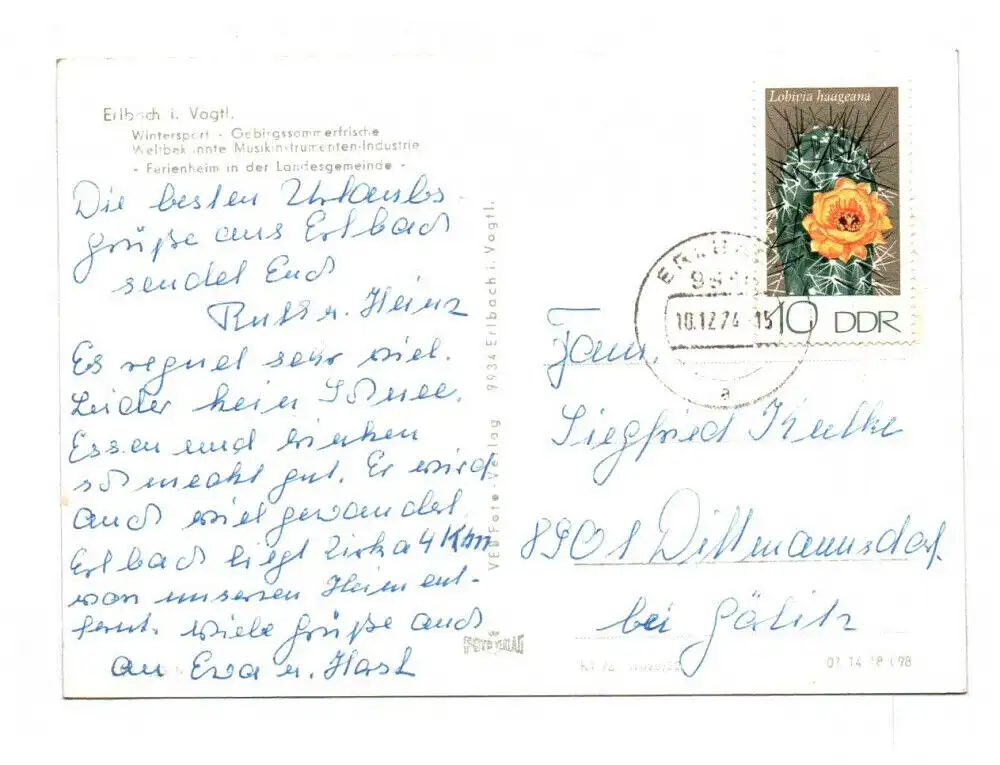 Erlbach i. Vogtl.
Wintersport - Gebirgssommerfrische
Weltbekannte Musikinstrumenten-Industrie
- Ferienheim in der Landesgemeinde -
Die besten Urlaubs-
grüße aus Erlbach
sendet Euch
Ruth u. Heinz
Es regnet sehr viel.
Leider kein Schnee.
Essen und trinken
schmeckt gut. Er wird
auch viel gewandert.
Erlbach liegt zirka 4 Km
von unseren Heim ent-
fernt. Viele Grüße auch
an Eva u. Horst
VEB Foto-Verlag 9934 Erlbach i. Vogtl.
FOTO VERLAG
Lobivia haageana
10 DDR
10.12.74-15
a
Fam.
Siegfried
8901 Dittmannsdorf
bei Görlitz